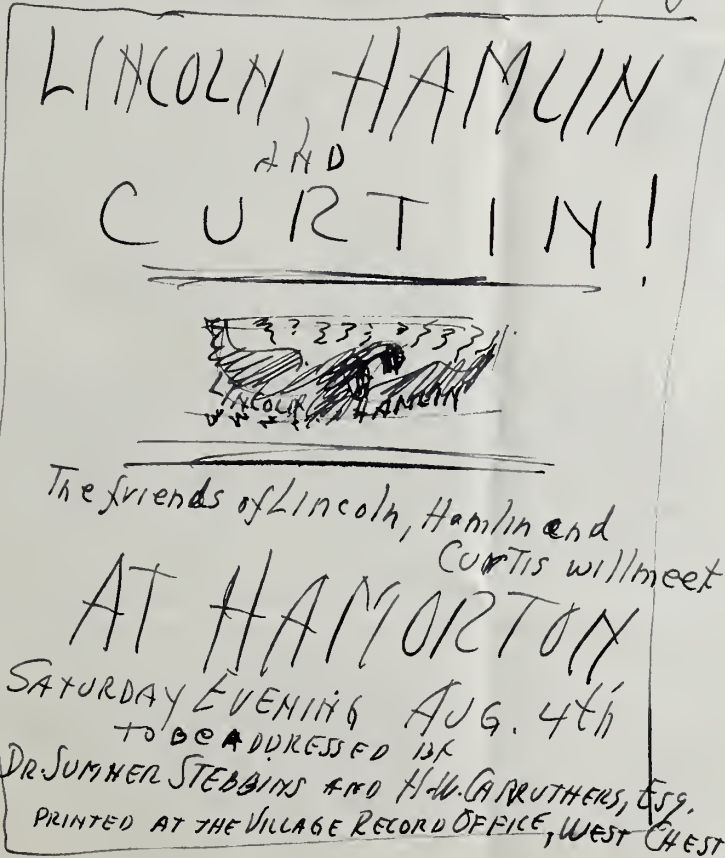 LINCOLN HAMLIN
AND
CURTIN!
LINCOLN HAMLIN
The friends of Lincoln, Hamlin and
Curtis will meet
AT HAMORTON
SATURDAY EVENING AUG. 4th
TO BE ADDRESSED BY
DR. SUMNER STEBBINS AND H.W. CARRUTHERS, ESQ.
PRINTED AT THE VILLAGE RECORD OFFICE, WEST CHEST